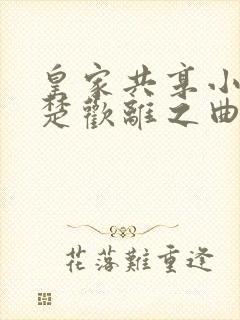 皇家共享小
楚歡離之曲
花落難重逢